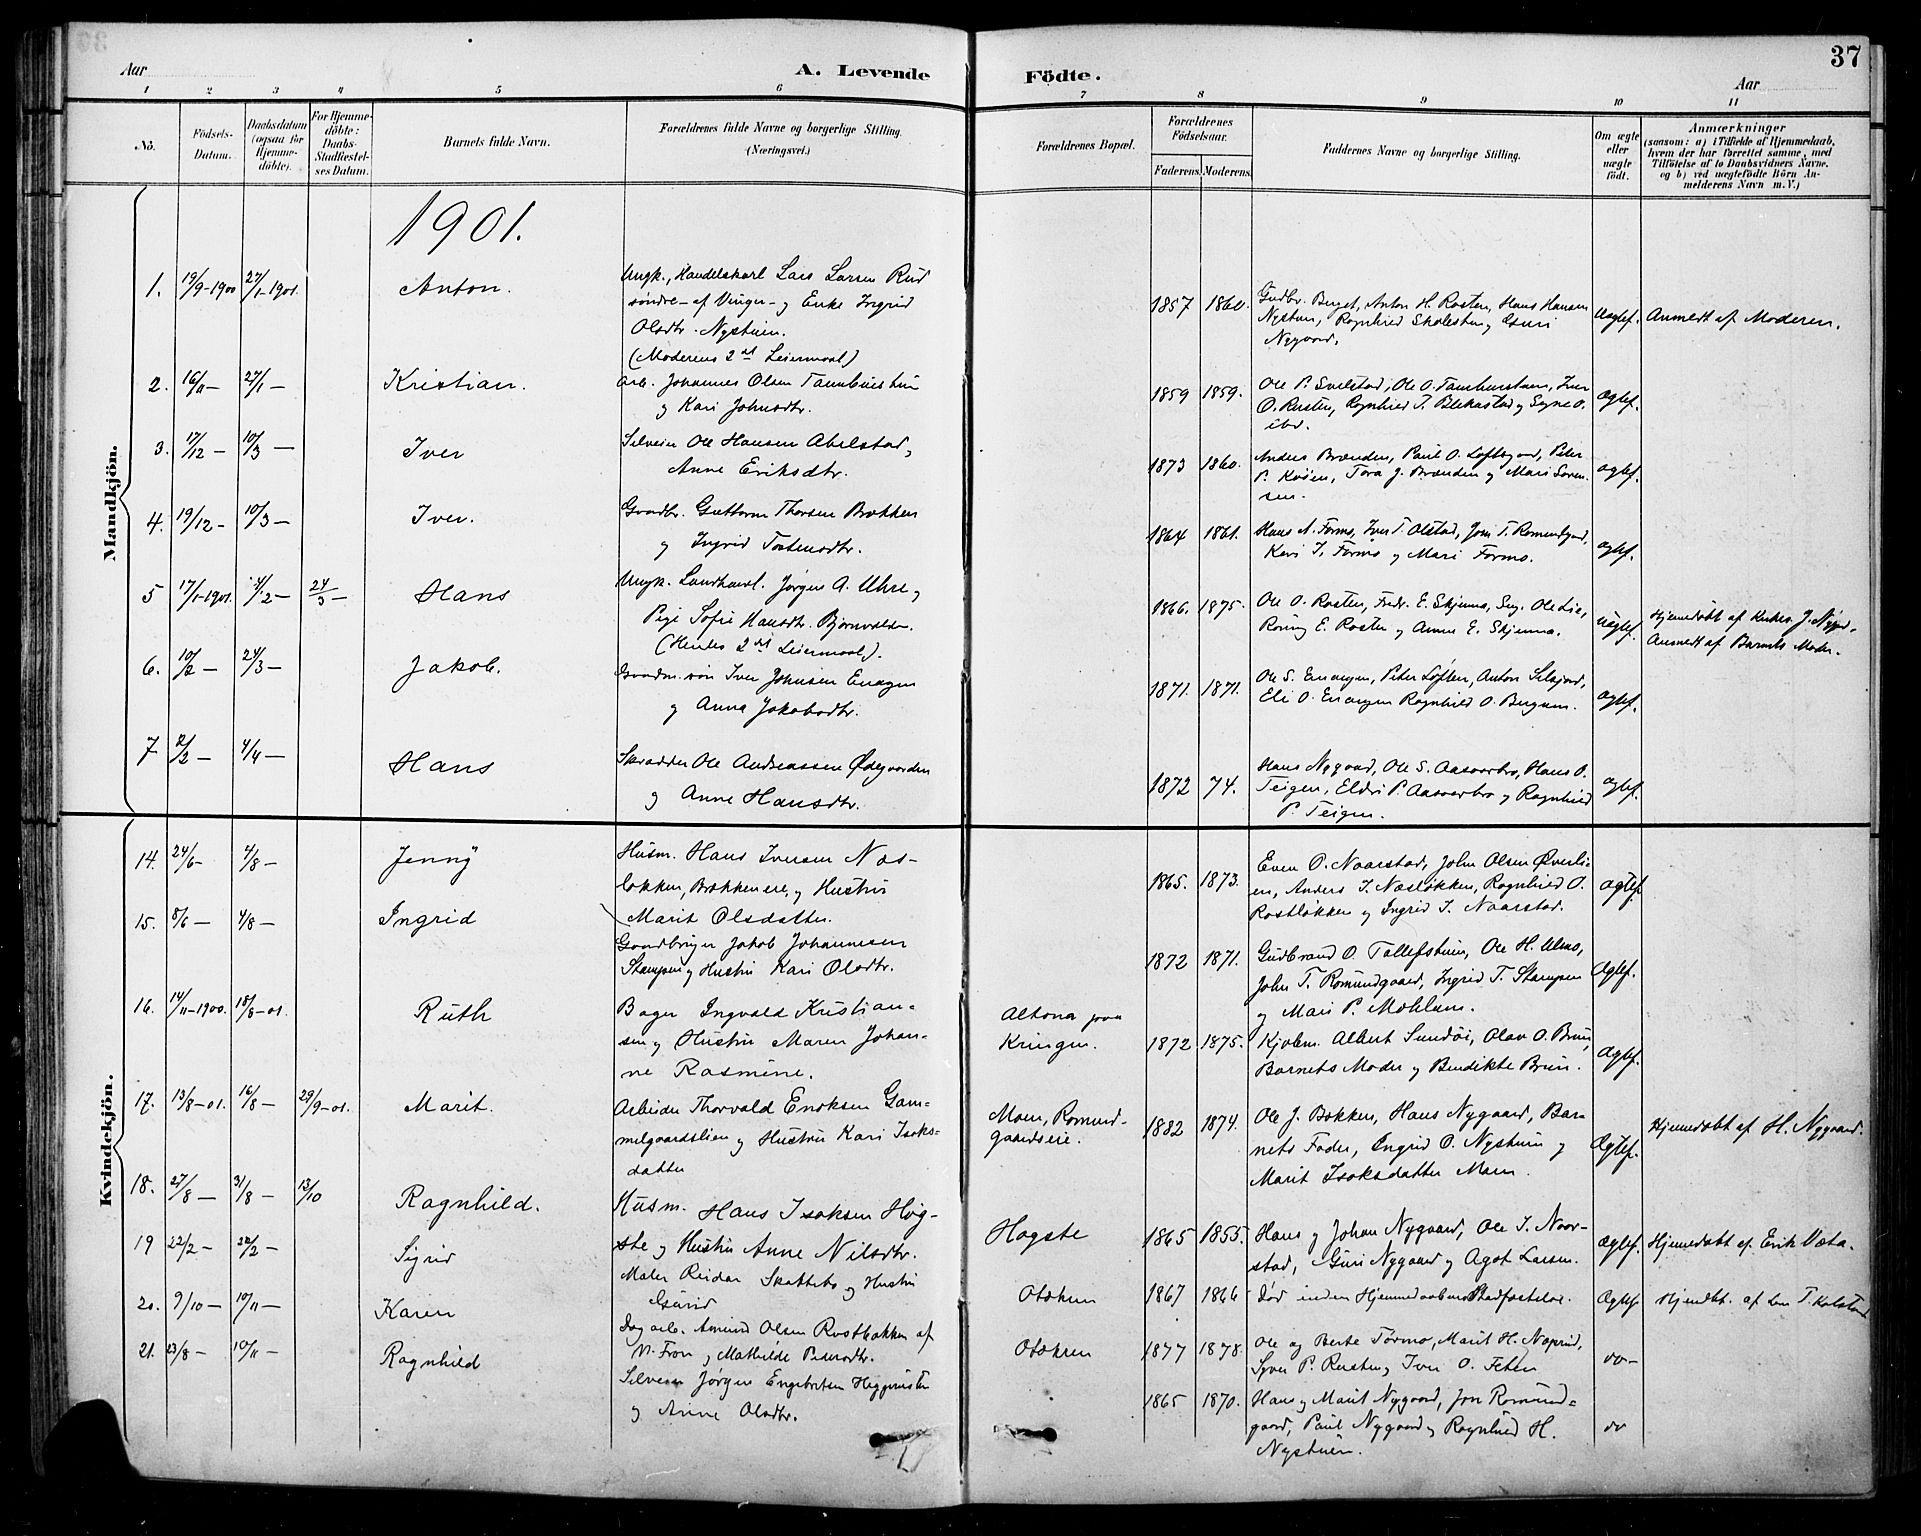 37
Aar
A. Levende
Födte.
Aar
1 2 3 4 5 6 7 8 9 10 11
No.
Födsels-
Datum.
Daabsdatum
(ogsaa for
Hjemme-
döbte).
For Hjemme-
döbte:
Daabs-
Stadfæstel-
ses Datum.
Barnets fulde Navn.
Forældrenes fulde Navne og borgerlige Stilling.
(Næringsvei.)
Forældrenes Bopæl.
Forældrenes
Födselsaar.
Faderens. Moderens.
Faddernes Navne og borgerlige Stilling.
Om ægte
eller
uægte
födt.
Anmærkninger
(saasom: a) i Tilfælde af Hjemmedaab,
hvem der har forrettet samme, med
Tilföielse af to Daabsvidners Navne.
og b) ved uægtefödte Börn An-
melderens Navn m. V.)
Mandkjön.
1901.
1. 19/9-1900 27/1-1901. Anton.
Ungk., Handelskarl Lars Larsen Rud
søndre - af Vinger - og Enke Ingrid
Olsdtr. Nystuen.
(Moderens 2det Leiermaal)
1857 1860.
Gudbr. Berget, Anton H. Rosten, Hans Hansen
Nystuen, Ragnhild Skolestuen og Guri
Nygaard.
Uægtef. Anmeldt af Moderen.
2. 16/11- 27/1- Kristian.
Arb. Johannes Olsen
og Kari Johnsdtr.
1859 1859.
Ole P. Svelstad, Ole O.
O. Rusten, Ragnhild T. Blekastad og Signe O.
ibd.
Ægtef.
3. 17/12- 10/3- Iver
Selveier Ole Hansen Abelstad,
Anne Eriksdtr.
1873 1860.
Anders Brænden, Paul O. Loftsgard, Peter
P. Kviien, Tora J. Brænden og Mari Soren-
sen.
ægtef.
4. 19/12- 10/3- Iver.
Gaardbr. Guttorm Thorsen Bakken
og Ingrid Tostensdtr.
1864 1861.
Hans N. Formo, Iver T. Olstad, Jon T. Romundgard,
Kari I. Formo og Mari Formo.
ægtef.
5 17/1-1901. 4/2- 24/3- Hans
Ungk. Landhandl. Jørgen A. Uhre og
Pige Sofie Hansdtr. Bjornvolden.
(Hendes 2det Leiermaal).
1866. 1875.
Ole O. Rosten, Fredr. E. Skjenna, Seg. Ole Lie,
E. Rosten og Anne E. Skjenna.
uægtef.
Hjemmedøbt af Kirkes. J. Nygd.
Anmeldt af Barnets Moder.
6. 10/2- 24/3- Jakob.
Gaardm. søn Iver Johnsen Enagen
og Anna Jakobsdtr.
1871. 1871.
Ole S. Enangen, Peter Loften, Anton Selsjord,
Eli O. Enangen Ragnhild O. Bergum.
ægtef.
7 2/2- 4/4- Hans
Skrædder Ole Andreassen Ødegaarden
og Anne Hansdtr.
1872 74.
Hans Nygaard, Ole S. Aasaarbro, Hans O.
Teigen, Eldri P. Aasaarbro og Ragnhild
P. Teigen.
ægtef.
Kvindekjön.
14. 24/6- 4/8- Jenny
Husm. Hans Iversen Næs-
løkken, Bakkeneie, og Hustru
Marit Olsdatter.
1865. 1873.
Even O. Naarstad, John Olsen Øverli-
en, Anders I. Næsløkken, Ragnhild O.
Rostløkken og Ingrid I. Naarstad.
ægtef.
15. 8/6- 4/8- Ingrid
Gaardbruger Jakob Johannesen
Stampen og Hustru Kari Olsdtr.
1872 1871.
Gudbrand O. Tollefstuen, Ole H. Ulmo,
John T. Romundgaard, Ingrid T. Stampen
og Mari P. Mohlum.
Ægtef.
16. 14/11-1900. 18/8-01. Ruth
Bager Ingvald Kristian-
sen og Hustru Maren Johan-
ne Rasmine.
Altona paa
Kringen.
1872 1875.
Kjobm. Albert Sundöi, Olav O. Brun,
Barnets Moder og Bendikte Brun.
Ægtef.
17. 13/8-01. 16/8- 29/9-01. Marit.
Arbeider Thorvald Eriksen Gam-
melgaardslien og Hustru Kari Isaks-
datter
Moen, Romund-
gaardseie.
1882 1874.
Ole J. Bakken, Hans Nygaard, Bar-
nets Fader, Ingrid O. Nystuen og
Marit Isaksdatter Moen.
Ægtef.
Hjemmedøbt af H. Nygaard.
18. 27/8- 31/8- 13/10 Ragnhild.
Husm. Hans Isaksen Høg-
ste og Hustru Anne Nilsdtr.
Høgste
1865 1855.
Hans og Johan Nygaard, Ole I. Naar-
stad, Guri Nygaard og Agot Larsen.
Ægtef.
Hjemmedøbt af Erik Væta.
19 22/2- 22/2- Sigrid
Maler Reidar Skattebo og Hustru
Gurid
Otækren
1867 1866
Død inden Hjemmedaabens Stadfæstelse.
Ægtef
Hjemdbt. af T. Kolstad
20. 9/10- 10/11- Karen
Dagarb. Amund Olsen Rustbakken af
N. Fron og Mathilde Pedersdtr.
Otækren
1877 1878.
Ole og Berte Formo, Marit H.
Syver P. Rusten og Iver O. Feten
do-
21. 23/8- 10/11- Ragnhild
Selveier Jørgen Engebretsen
og Anne Olsdtr.
1865 1870.
Hans og Marit Nygaard, Jon Romund-
gaard, Paul Nygaard og Ragnhild H.
Nystuen.
do